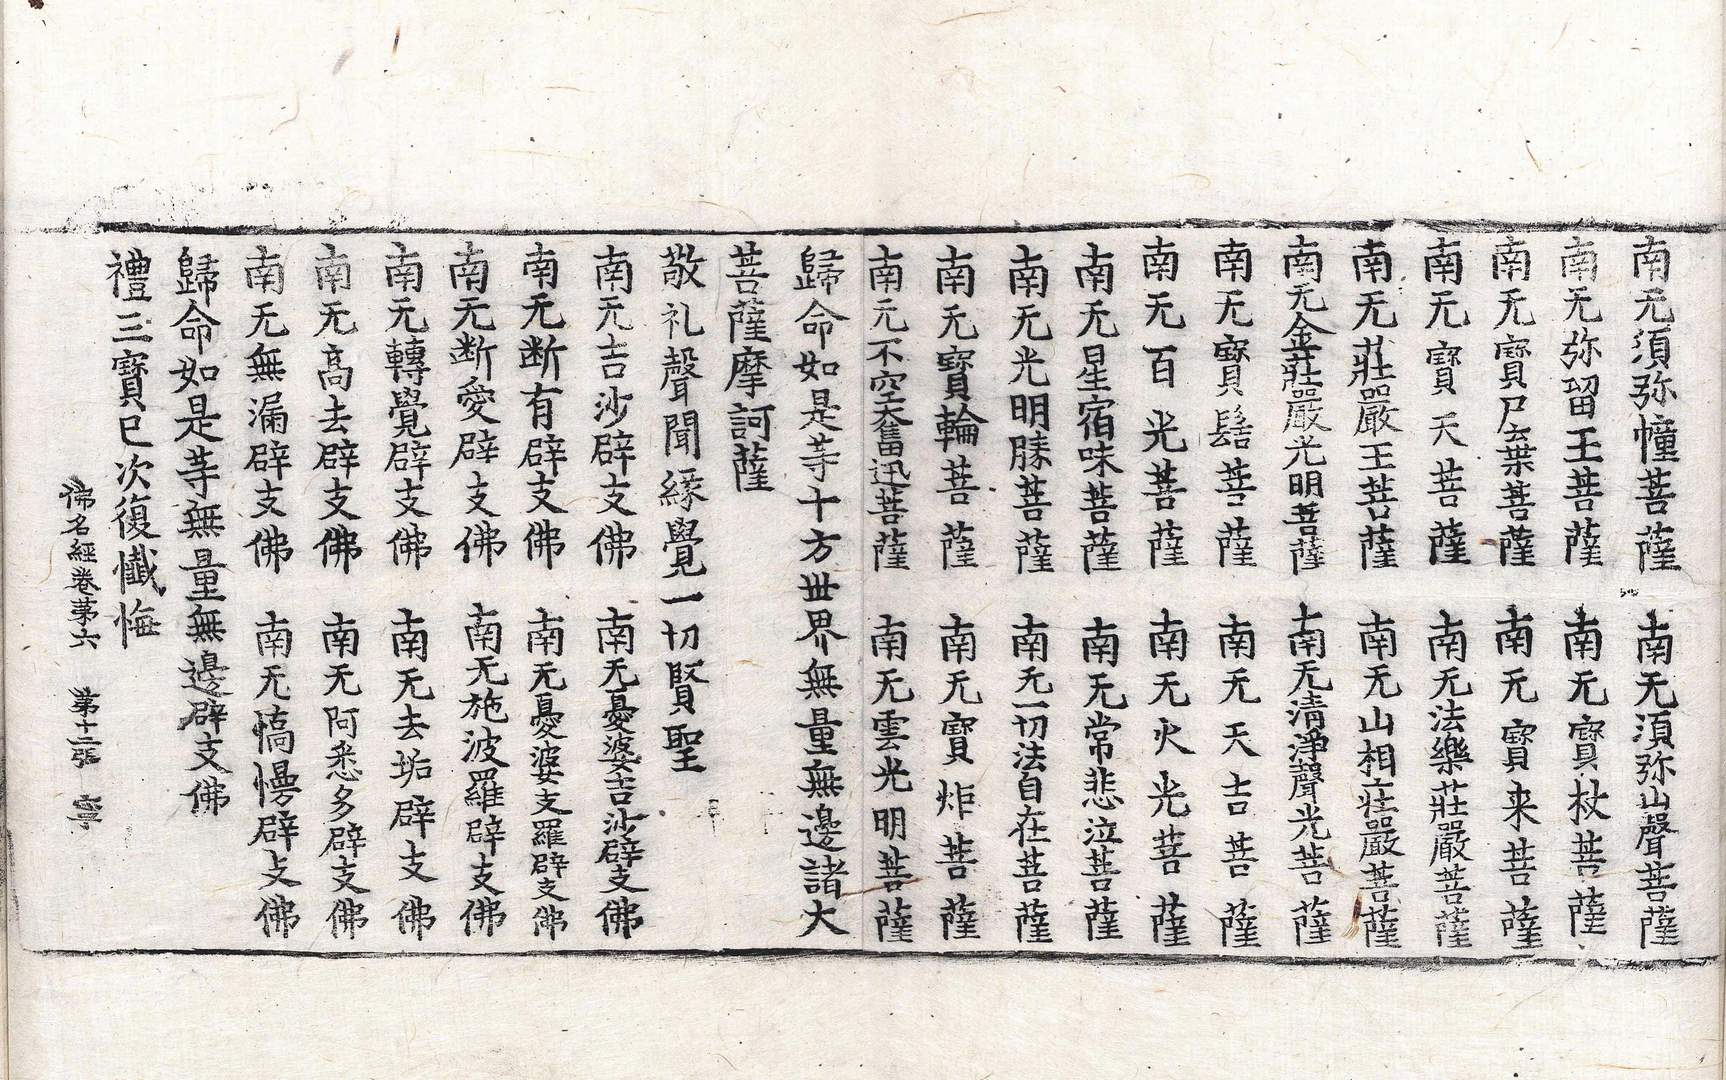 南无須弥幢菩薩 南无須弥山聲菩薩
南无弥留王菩薩 南无寶杖菩薩
南无寶尸棄菩薩 南无寶来菩薩
南无寶天菩薩 南无法樂莊嚴菩薩
南无莊嚴王菩薩 南无山相莊嚴菩薩
南无金莊嚴光明菩薩 南无清淨聲光菩薩
南无寶髻菩薩 南无天吉菩薩
南无百光菩薩 南无火光菩薩
南无星宿味菩薩 南无常悲泣菩薩
南无光明勝菩薩 南无一切法自在菩薩
南无寶輪菩薩 南无寶炬菩薩
南无不空奮迅菩薩 南无雲光明菩薩
歸命如是等十方世界無量無邊諸大
菩薩摩訶薩
敬礼聲聞緣覺一切賢聖
南无吉沙辟支佛 南无憂婆吉沙辟支佛
南无断有辟支佛 南无憂婆支羅辟支佛
南无断愛辟支佛 南无施波羅辟支佛
南无轉覺辟支佛 南无去垢辟支佛
南无高去辟支佛 南无阿悉多辟支佛
南无無漏辟支佛 南无憍慢辟支佛
歸命如是等無量無邊辟支佛
禮三寶已次復懺悔
佛名經卷苐六 苐十二張